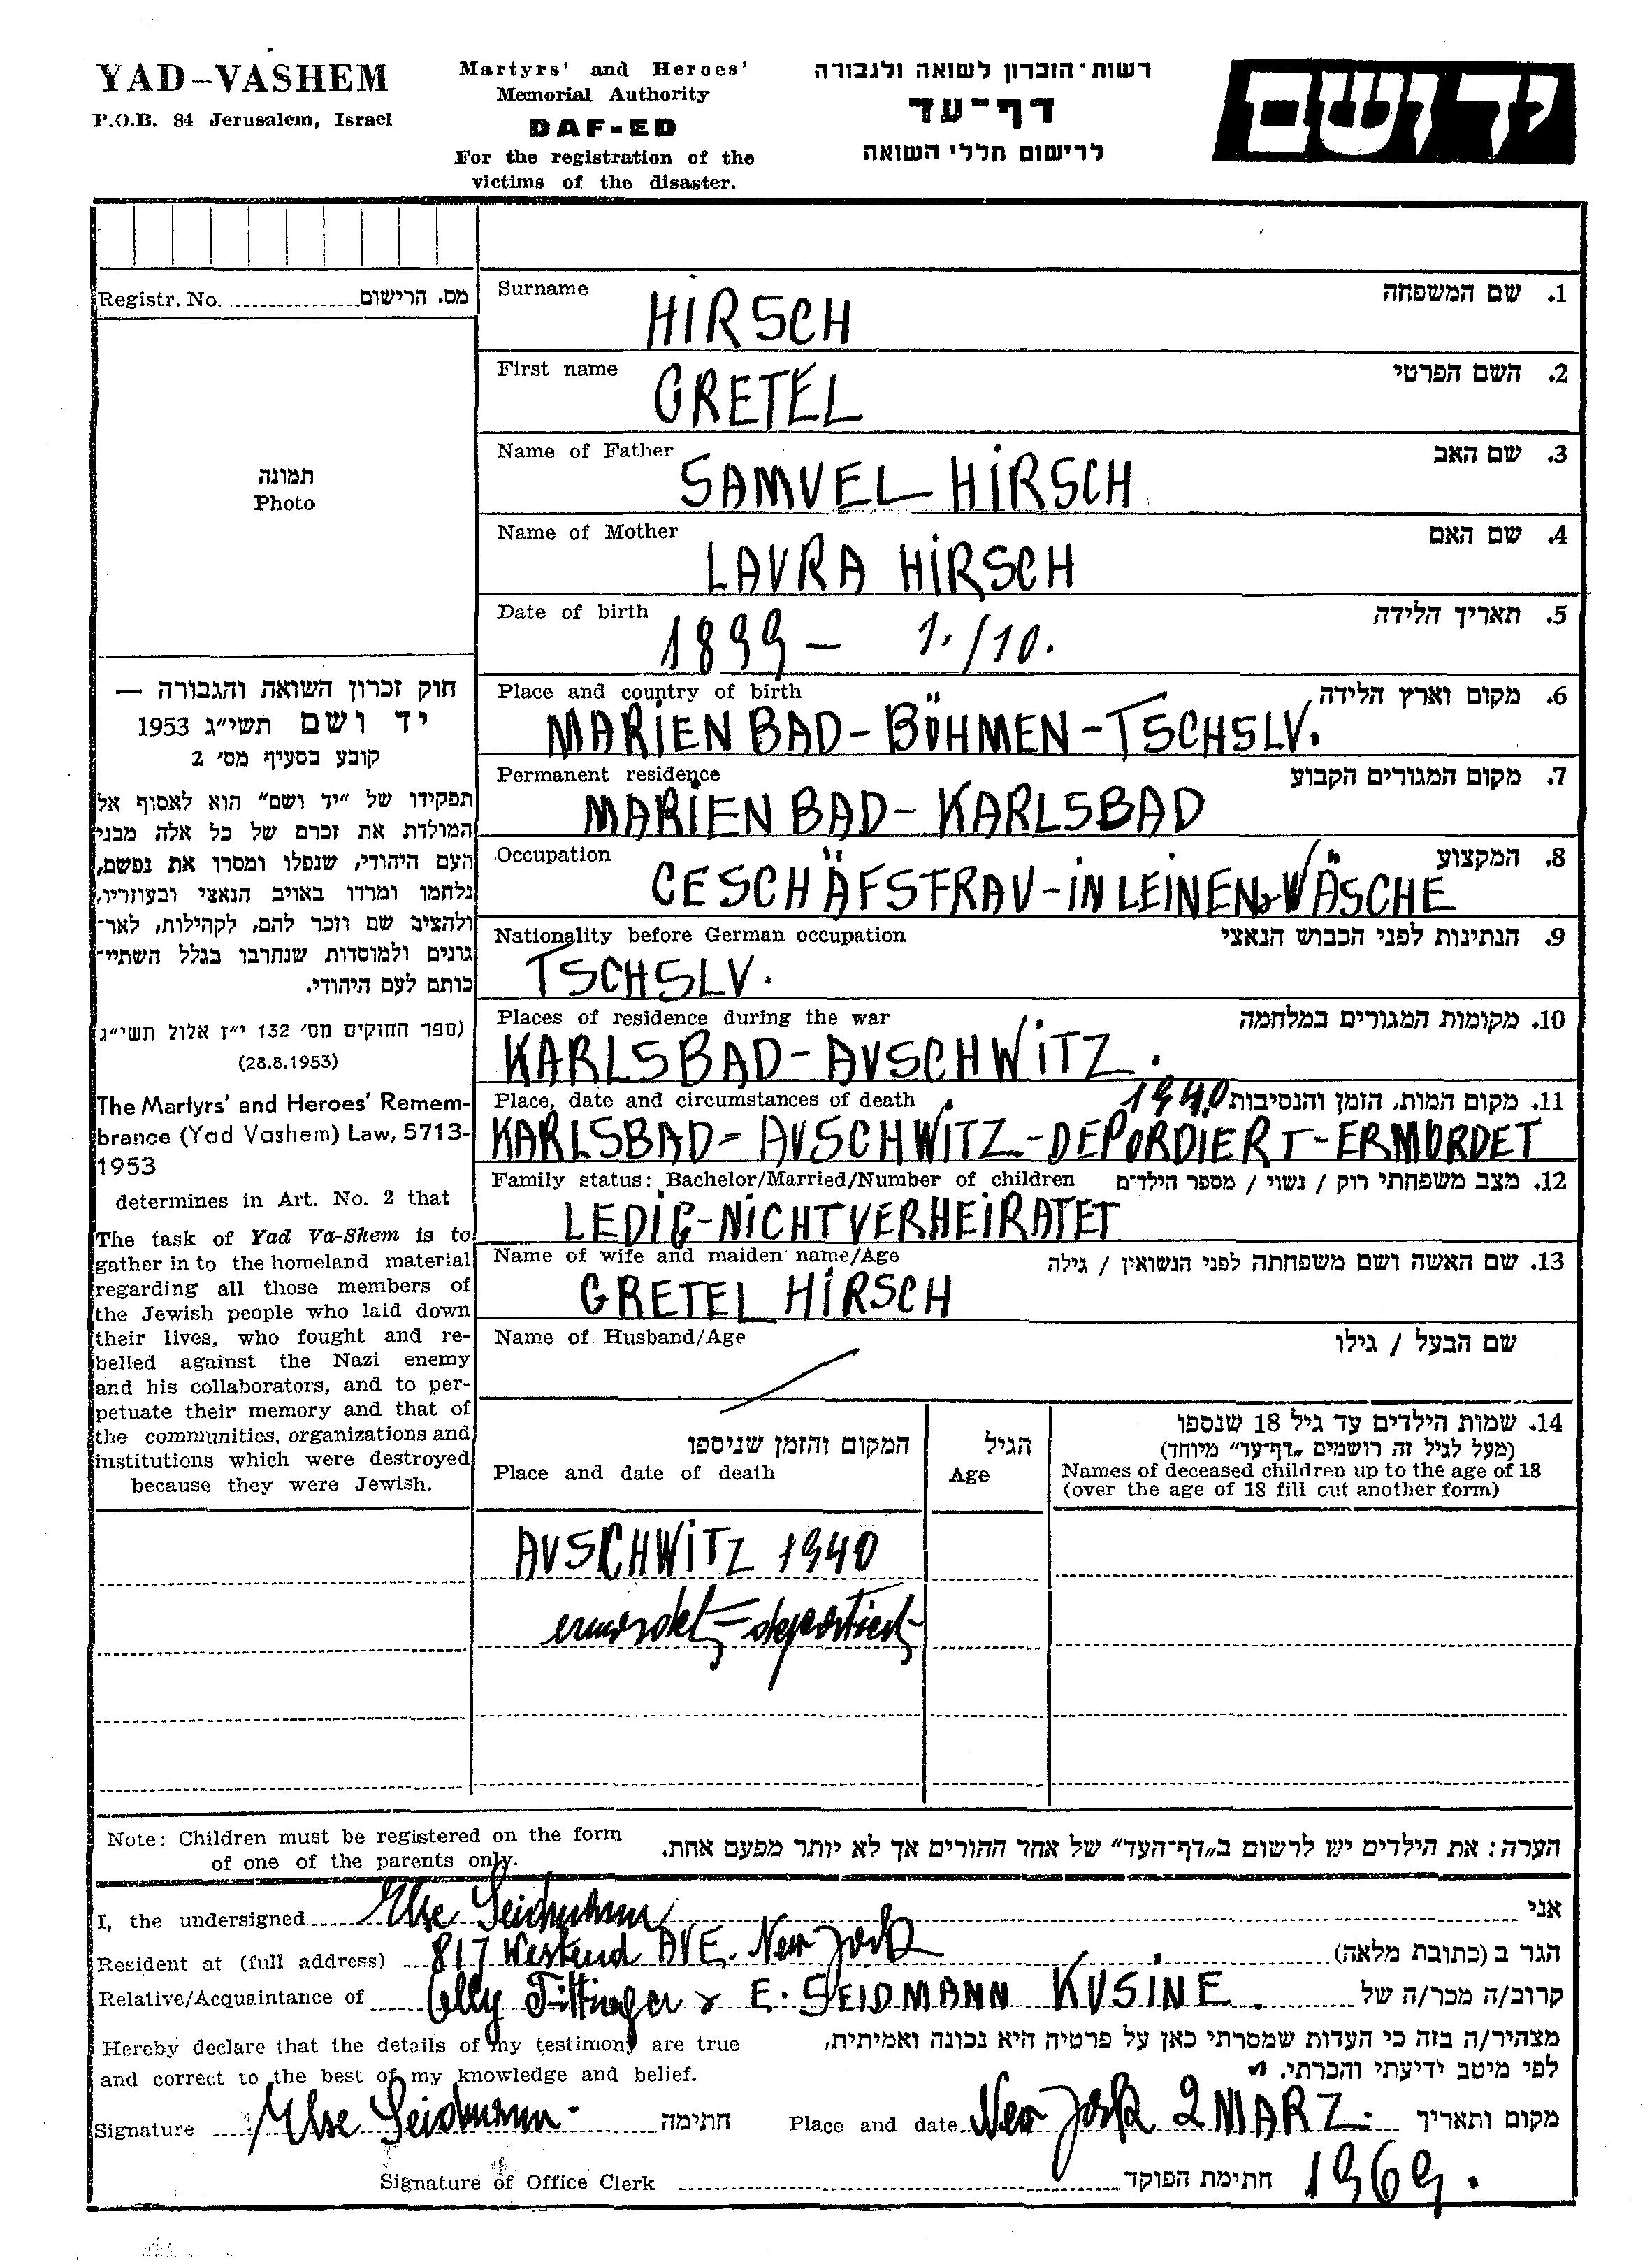 YAD-VASHEM
P.O.B. 84 Jerusalem, Israel
Martyrs' and Heroes'
Memorial Authority
DAF-ED
For the registration of the
victims of the disaster.
רשות-הזכרון לשואה ולגבורה
דף-עד
לרישום חללי השואה
יד ושם
Registr. No. מס. הרישום
תמונה
Photo
חוק זכרון השואה והגבורה —
יד ושם תשי״ג 1953
קובע בסעיף מס׳ 2
תפקידו של ״יד ושם״ הוא לאסוף אל
המולדת את זכרם של כל אלה מבני
העם היהודי, שנפלו ומסרו את נפשם,
נלחמו ומרדו באויב הנאצי ובעוזריו,
ולהציב שם וזכר להם, לקהילות, לאר-
גונים ולמוסדות שנחרבו בגלל השתיי-
כותם לעם היהודי.
(ספר החוקים מס׳ 132 י״ז אלול תשי״ג
(28.8.1953)
The Martyrs' and Heroes' Remem-
brance (Yad Vashem) Law, 5713-
1953
determines in Art. No. 2 that
The task of Yad Va-Shem is to
gather in to the homeland material
regarding all those members of
the Jewish people who laid down
their lives, who fought and re-
belled against the Nazi enemy
and his collaborators, and to per-
petuate their memory and that of
the communities, organizations and
institutions which were destroyed
because they were Jewish.
Surname 1. שם המשפחה
HIRSCH
First name 2. השם הפרטי
GRETEL
Name of Father 3. שם האב
SAMUEL HIRSCH
Name of Mother 4. שם האם
LAURA HIRSCH
Date of birth 5. תאריך הלידה
1899 - 1./10.
Place and country of birth 6. מקום וארץ הלידה
MARIENBAD - BÖHMEN - TSCHSLV.
Permanent residence 7. מקום המגורים הקבוע
MARIENBAD - KARLSBAD
Occupation 8. המקצוע
GESCHÄFSTFRAU - IN LEINEN & WÄSCHE
Nationality before German occupation 9. הנתינות לפני הכבוש הנאצי
TSCHSLV.
Places of residence during the war 10. מקומות המגורים במלחמה
KARLSBAD - AUSCHWITZ.
Place, date and circumstances of death 1940 11. מקום המות, הזמן והנסיבות
KARLSBAD - AUSCHWITZ - DEPORDIERT - ERMORDET
Family status: Bachelor/Married/Number of children 12. מצב משפחתי רוק / נשוי / מספר הילדים
LEDIG - NICHT VERHEIRATET
Name of wife and maiden name/Age 13. שם האשה ושם משפחתה לפני הנשואין / גילה
GRETEL HIRSCH
Name of Husband/Age שם הבעל / גילו
המקום והזמן שניספו
Place and date of death
הגיל
Age
14. שמות הילדים עד גיל 18 שנספו
(מעל לגיל זה רושמים „דף-עד״ מיוחד)
Names of deceased children up to the age of 18
(over the age of 18 fill out another form)
AUSCHWITZ 1940
ermordet = deportiert
Note: Children must be registered on the form
of one of the parents only.
הערה: את הילדים יש לרשום ב„דף-העד״ של אחד ההורים אך לא יותר מפעם אחת.
I, the undersigned Else Seidmann אני
Resident at (full address) 817 Westend AVE. New York הגר ב (כתובת מלאה)
Relative/Acquaintance of & E. SEIDMANN KUSINE. קרוב/ה מכר/ה של
Hereby declare that the details of my testimony are true
and correct to the best of my knowledge and belief.
מצהיר/ה בזה כי העדות שמסרתי כאן על פרטיה היא נכונה ואמיתית,
לפי מיטב ידיעתי והכרתי.
Signature Else Seidmann. חתימה
Place and date New York 2 MARZ. מקום ותאריך
1969.
Signature of Office Clerk חתימת הפוקד